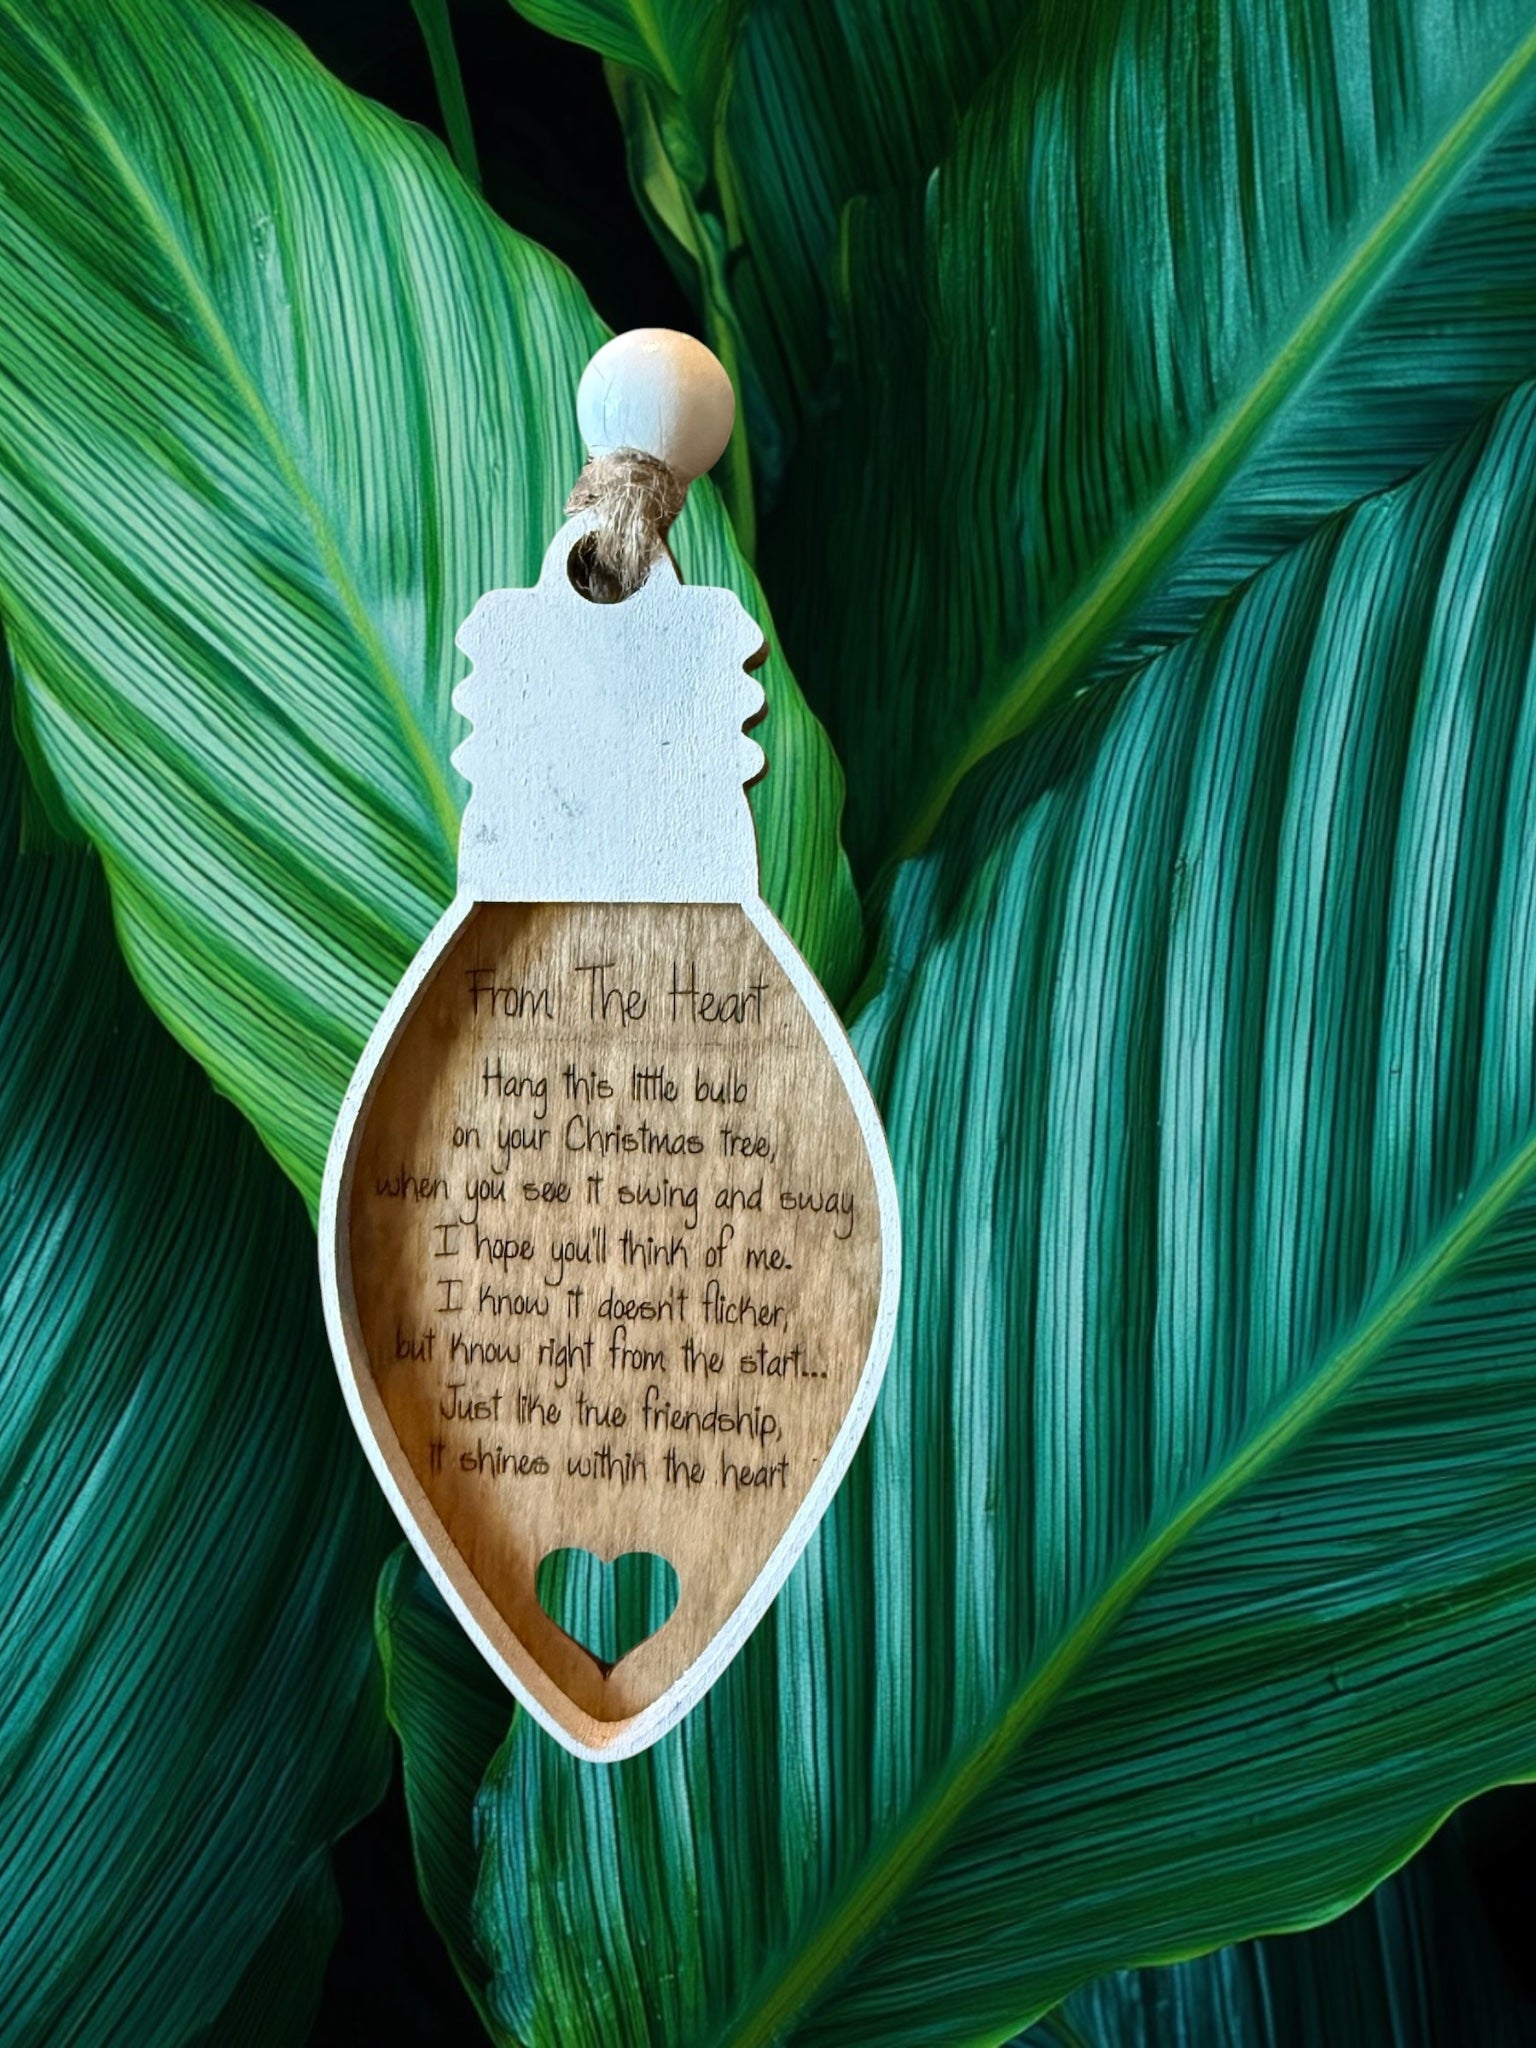 From The Heart
Hang this little bulb
on your Christmas tree,
when you see it swing and sway
I hope you'll think of me.
I know it doesn't flicker,
but know right from the start...
Just like true friendship,
it shines within the heart